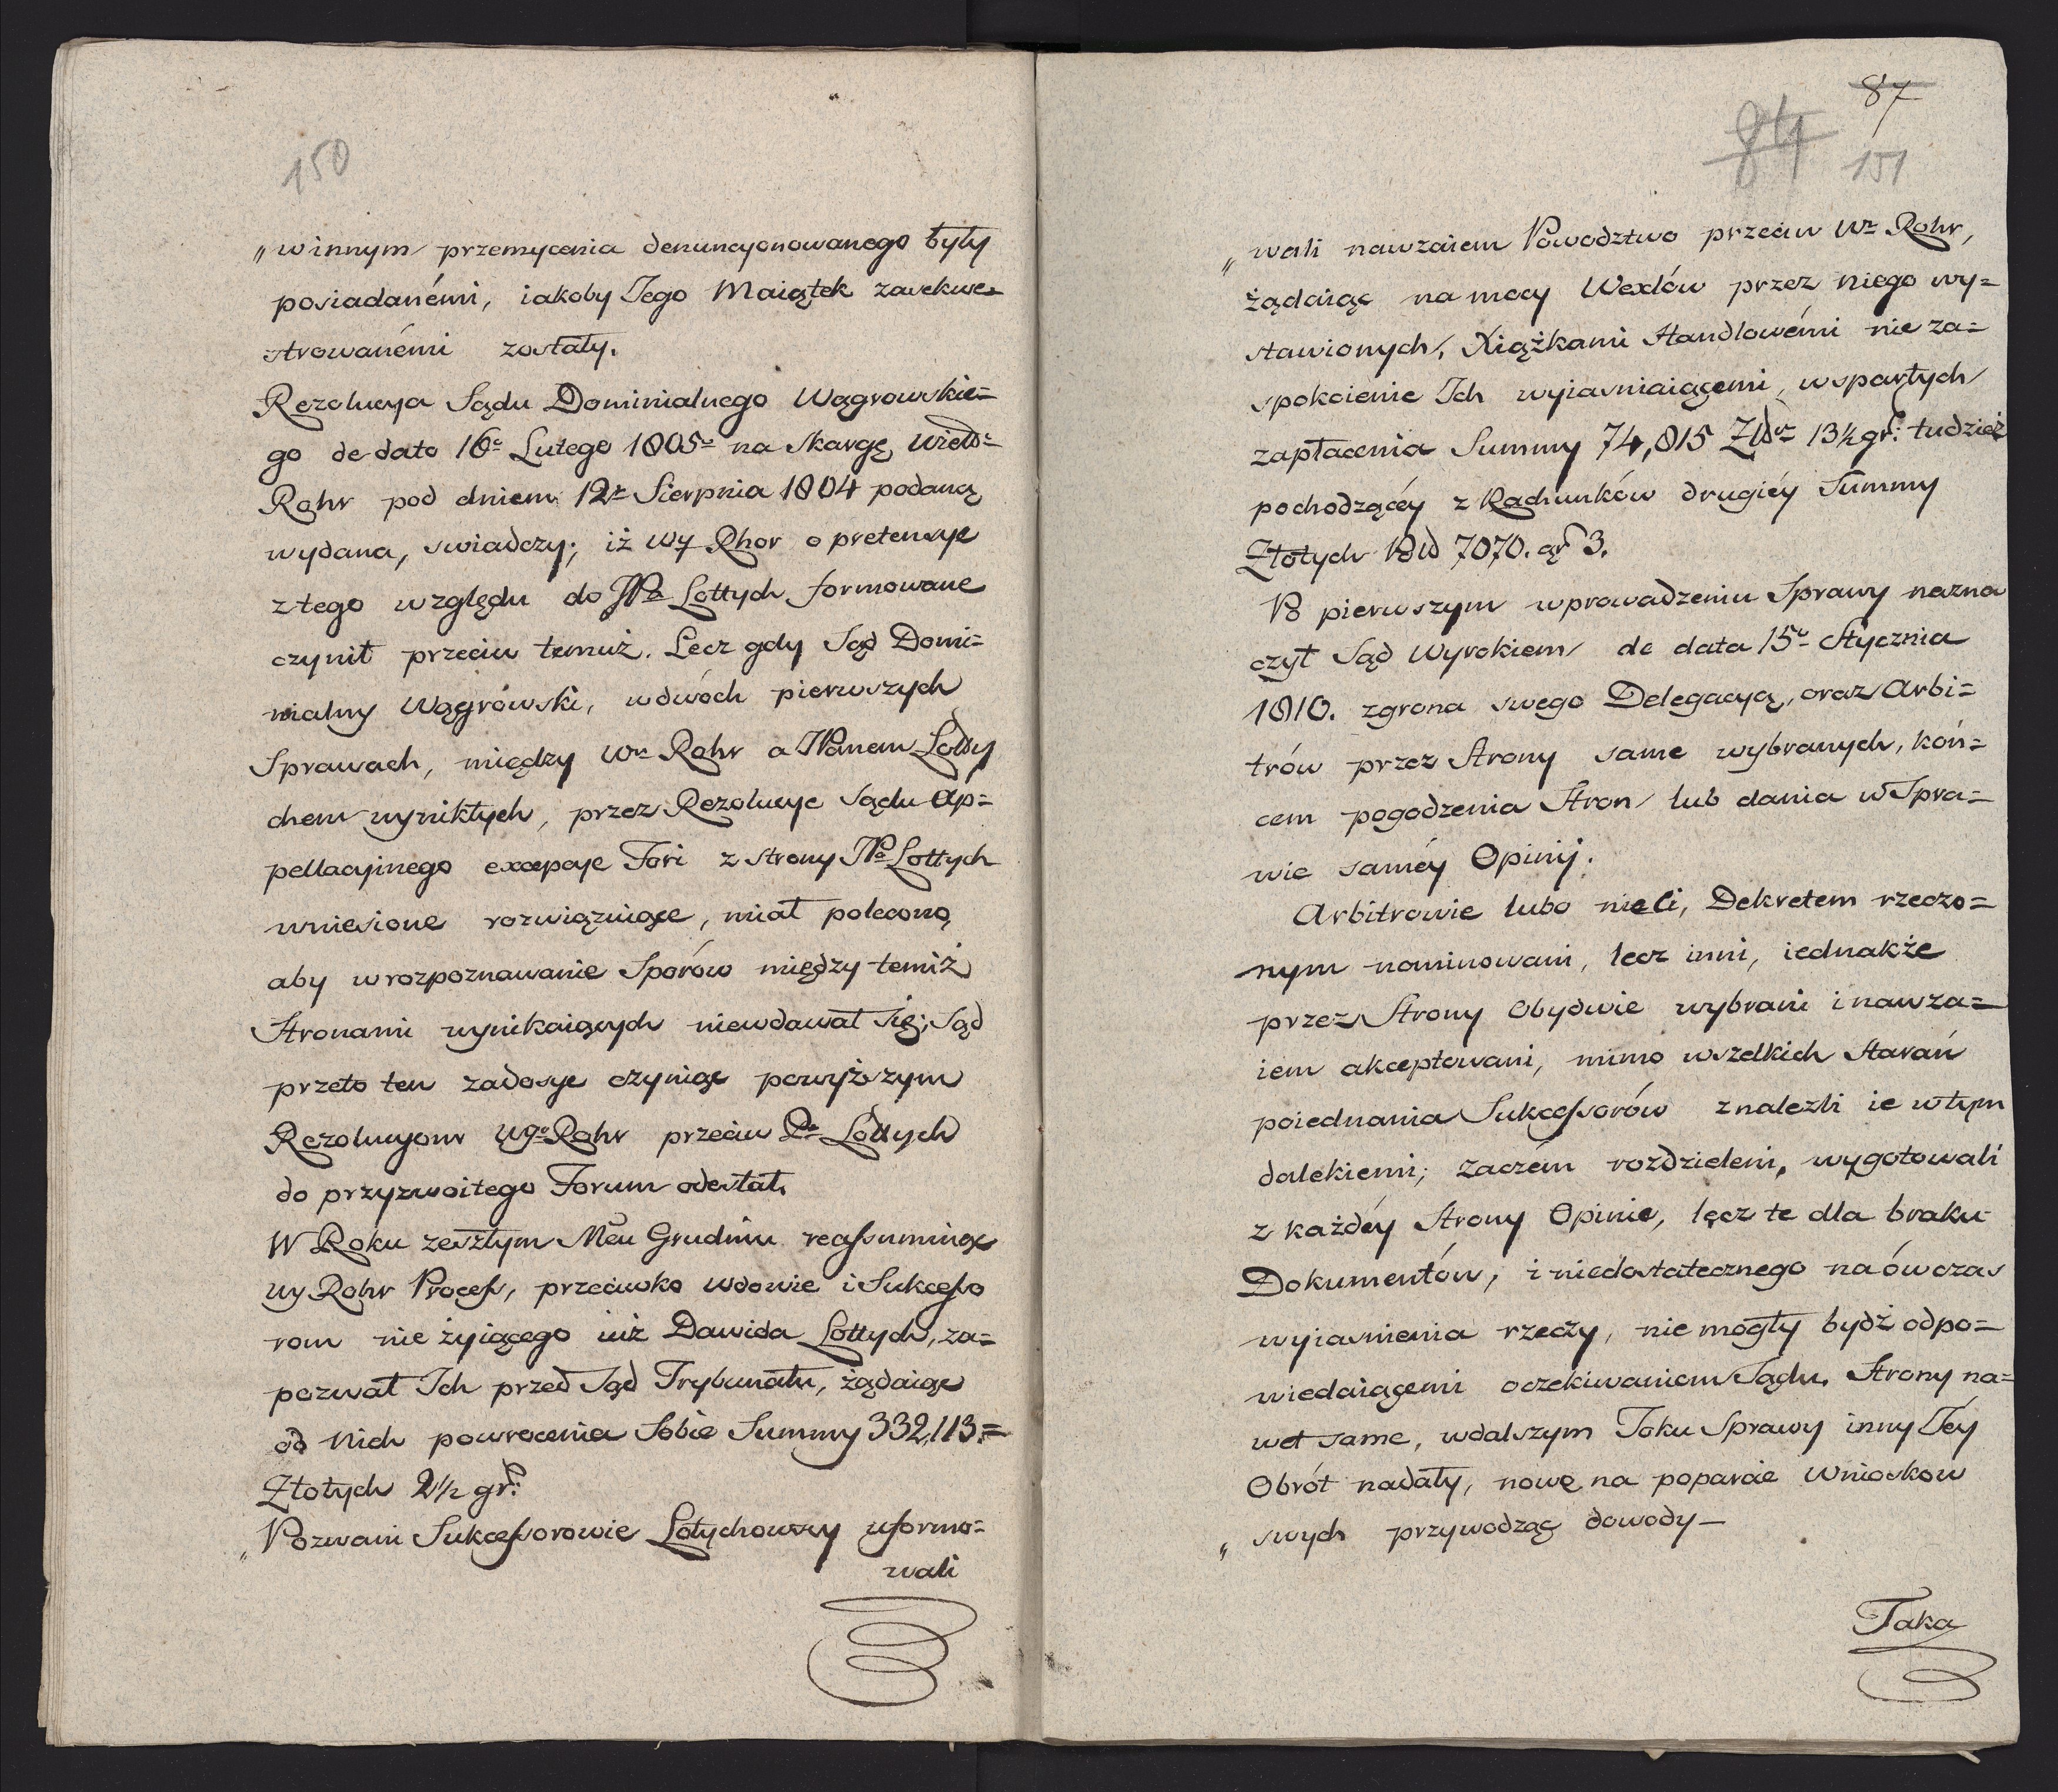 150
„ winnym przemycenia denuncyonowanego były
posiadanémi, iakoby Jego Maiątek zasekwe=
strowanémi zostały.
Rezolucya Sądu Dominialnego Wągrowskie=
go de dato 16º Lutego 1805º na skargę Wielo:
Rohr pod dniem 12º Sierpnia 1804 podaną
wydana, swiadczy; iż Wy Rhor o pretensye
z tego względu do JPa Lottych formowane
czynił przeciw temuż. Lecz gdy Sąd Domi=
nialny Wągrówski, wdwóch pierwszych
Sprawach, między Wm Rohr a JPanem Lotty
chem wynikłych, przez Rezolucye Sądu Ap=
pellacyinego excepcye Fori z strony JPa Lottych
wniesione rozwiązuiące, miał polecono
aby w rozpoznawanie Sporów między temiż
Stronami wynikaiących niewdawał się; Sąd
przeto ten zadosyc czyniąc powyższym
Rezolucyom Wgo Rohr przeciw Pa Lottych
do przyzwoitego Forum odesłał.
W Roku zeszłym Mcu Grudniu reassumuiąc
Wy Rohr Process, przeciwko Wdowie i Sukcesso
rom nie żyiącego iuż Dawida Lottych, za=
pozwał Ich przed Sąd Trybunału, żądaiąc
od Nich powrocenia Sobie Summy 332,113.=
Złotych 2½ gr:
„ Pozwani Sukcessorowie Lotychowscy uformo=
wali
87
84 151
„ wali nawzaiem Powodztwo przeciw Wu Rohr,
żądaiąc na mocy Wexlów przez niego wy=
stawionych, Xiążkami Handlowémi nie za=
spokoienie Ich wyiasniaiącemi, wspartych
zapłacenia Summy 74,815 Złor 13½ gr: tudzież
pochodzącéy z Rachunków drugiéy Summy
Złotych Pol 7070. gr 3.
Po pierwszym wprowadzeniu Sprawy nazna
czył Sąd Wyrokiem de data 15º Stycznia
1810. zgrona swego Delegacyą, oraz Arbi=
trów przez Strony same wybranych, koń=
cem pogodzenia Stron lub dania w Spra=
wie saméy Opinij.
Arbitrowie lubo nie ci, Dekretem rzeczo=
nym nominowani, lecz inni, iednakże
przez Strony Obydwie wybrani i nawza=
iem akceptowani, mimo wszelkich starań
poiednania Sukcessorów znalezli ie w tym
dalekiemi; zaczém rozdzieleni, wygotowali
z każdéy Strony Opinie, lecz te dla braku
Dokumentów, i niedostatecznego naówczas
wyiasnienia rzeczy, nie mogły bydź odpo=
wiedaiącemi oczekiwaniom Sądu. Strony na=
wet same, w dalszym Toku Sprawy inny Jéy
Obrót nadały, nowe na poparcie Wniosków
„ swych przywodząc dowody —
Taka